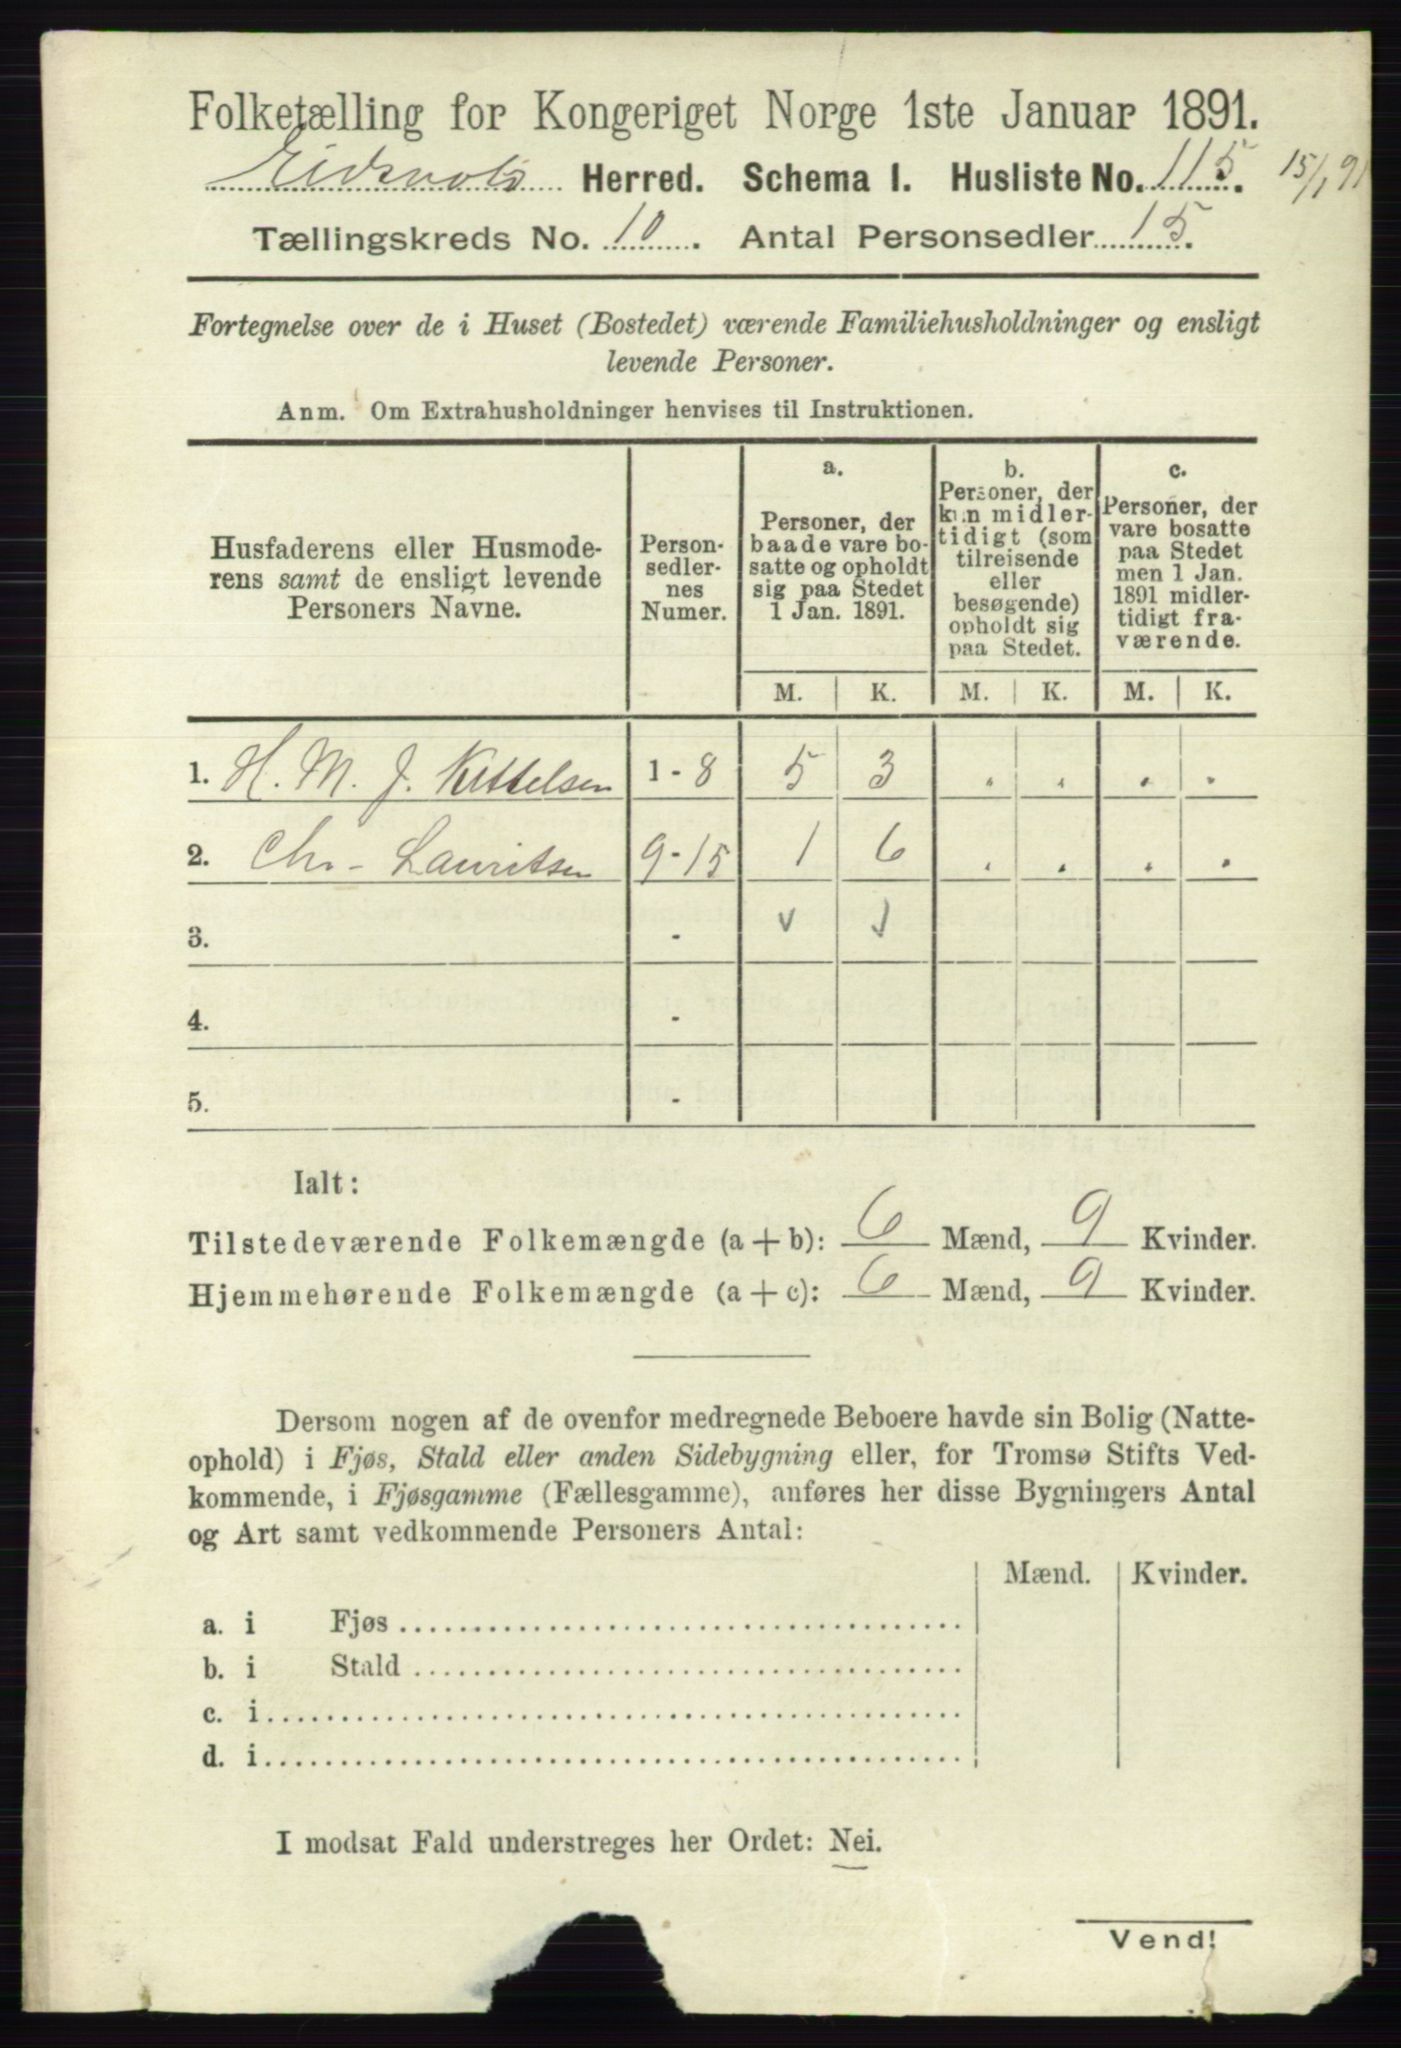 Folketælling for Kongeriget Norge 1ste Januar 1891.
Eidsvolds Herred. Schema I. Husliste No. 115. 15/1 91
Tællingskreds No. 10. Antal Personsedler 15.
Fortegnelse over de i Huset (Bostedet) værende Familiehusholdninger og ensligt
levende Personer.
Anm. Om Extrahusholdninger henvises til Instruktionen.
Husfaderens eller Husmode-
rens samt de ensligt levende
Personers Navne.
Person-
sedler-
nes
Numer.
a.
Personer, der
baade vare bo-
satte og opholdt
sig paa Stedet
1 Jan. 1891.
b.
Personer, der
kun midler-
tidigt (som
tilreisende
eller
besøgende)
opholdt sig
paa Stedet.
c.
Personer, der
vare bosatte
paa Stedet
men 1 Jan.
1891 midler-
tidigt fra-
værende.
M. K. M. K. M. K.
1. H. M. J. Kittelsen 1 - 8 5 3 . . . .
2. Chr - Lauritsen 9 - 15 1 6 . . . .
3. -
4. -
5. -
Ialt:
Tilstedeværende Folkemængde (a + b): 6 Mænd, 9 Kvinder.
Hjemmehørende Folkemængde (a + c): 6 Mænd, 9 Kvinder.
Dersom nogen af de ovenfor medregnede Beboere havde sin Bolig (Natte-
ophold) i Fjøs, Stald eller anden Sidebygning eller, for Tromsø Stifts Ved-
kommende, i Fjøsgamme (Fællesgamme), anføres her disse Bygningers Antal
og Art samt vedkommende Personers Antal:
Mænd. Kvinder.
a. i Fjøs
b. i Stald
c. i
d. i
I modsat Fald understreges her Ordet: Nei.
Vend!